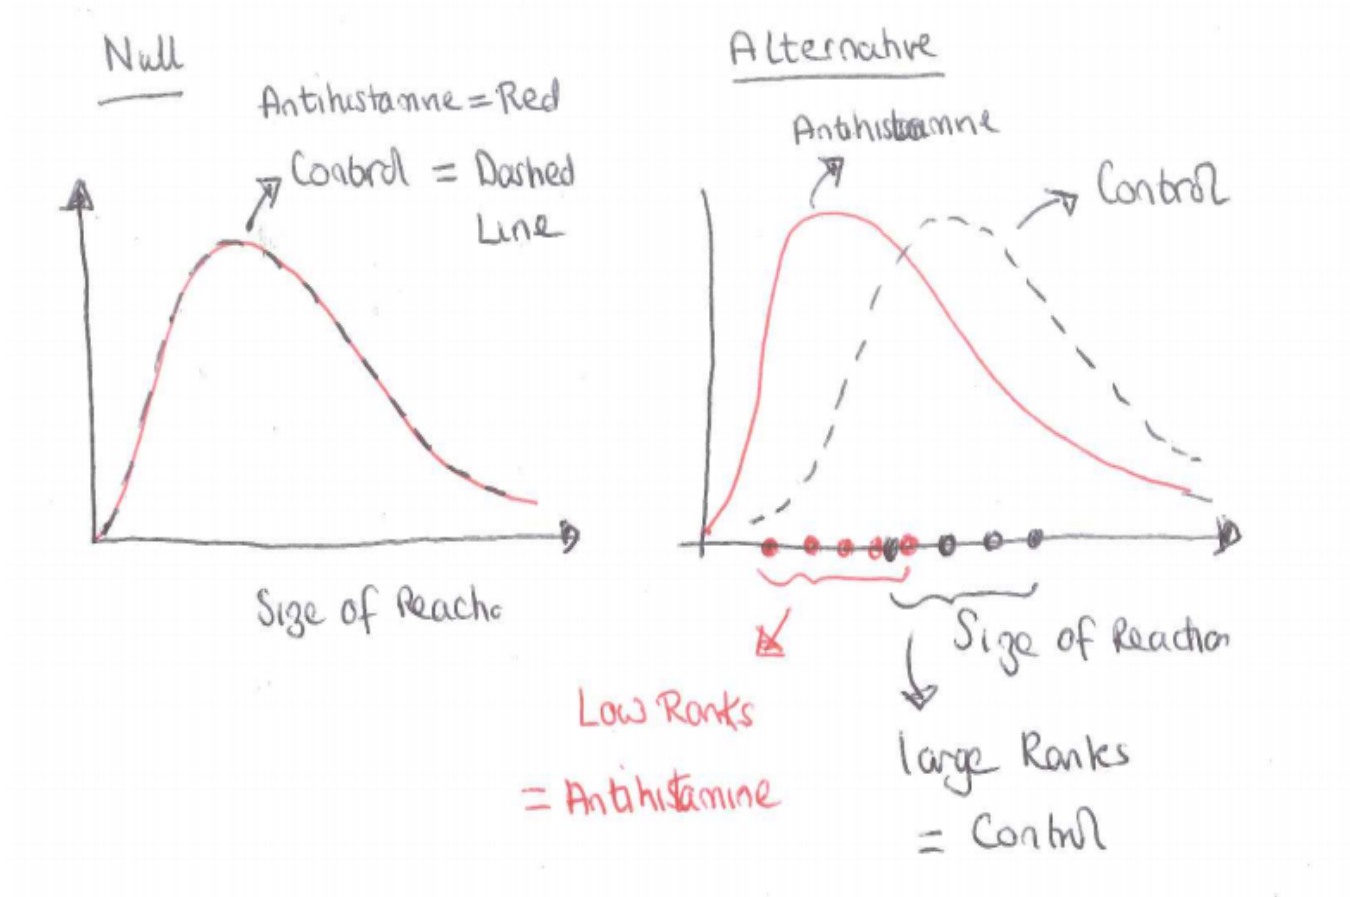 Null
Antihistamne = Red
Control = Dashed
Line
Size of Reactio
Alternative
Antihistamne
Control
Size of Reaction
Low Ranks
= Antihistamine
Large Ranks
= Control